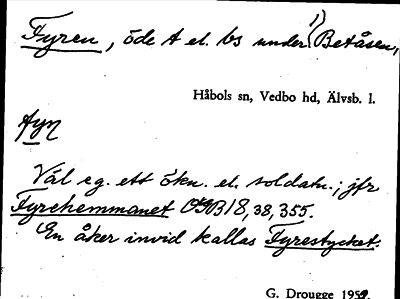 Fyren, öde t el. bs under 1) Betåsen,
Håbols sn, Vedbo hd, Älvsb. l.
fyn
Väl eg. ett ökn. el. soldatn.; jfr
Fyrehemmanet OGB 18, 38, 355.
En åker invid kallas Fyrestycket.
G. Drougge 1959.